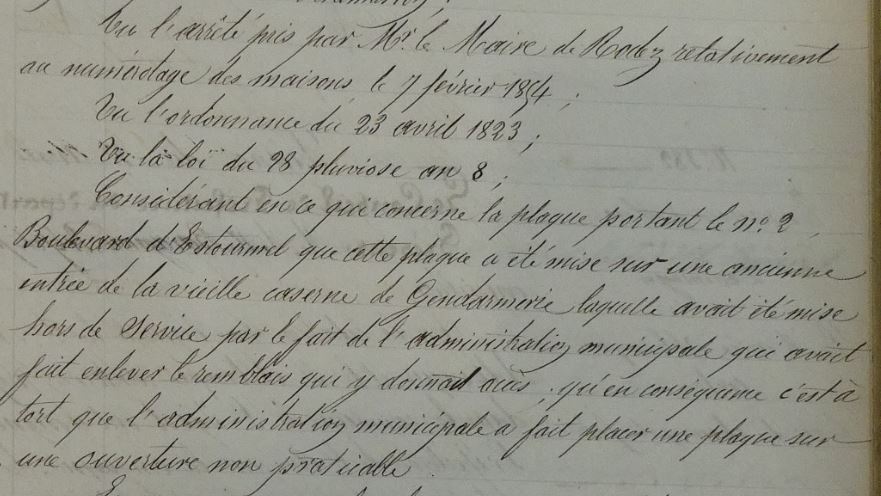 Vu l'arrêté pris par Mr. le Maire de Rodez relativement
au numérotage des maisons le 7 février 1854 ;
Vu l'ordonnance du 23 avril 1823 ;
Vu la loi du 28 pluviose an 8 ;
Considérant en ce que concerne la plaque portant le no. 2
Boulevard d'Estourmel que cette plaque a été mise sur une ancienne
entrée de la vieille caserne de Gendarmerie laquelle avait été mise
hors de service par le fait de l'administration municipale qui avait
fait enlever le remblais qui y donnait accès ; qu'en conséquence c'est à
tort que l'administration municipale a fait placer une plaque sur
une ouverture non praticable.